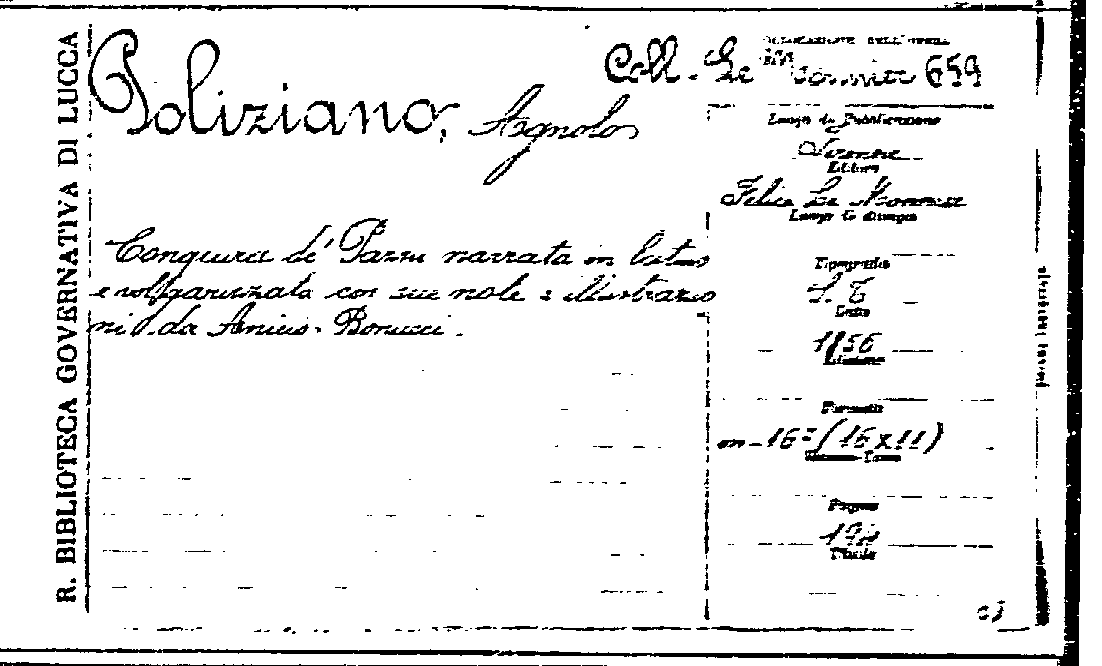 R. BIBLIOTECA GOVERNATIVA DI LUCCA
Poliziano, Agnolo
Congiura de' Pazzi narrata in latino
e volgarizzata con sue note e illustrazio
ni da Anicio Bonucci.
COLLOCAZIONE DELL'OPERA
Coll. Le Monnier 659
Luogo di Pubblicazione
Firenze
Editore
Felice Le Monnier
Luogo di stampa
Tipografia
S. T.
Data
1856
Edizione
Formato
in-16° (16x11)
Pagine
Tavole